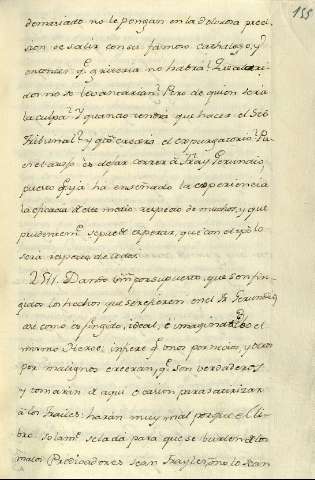 155
demasiado no le pongan en la dolorosa preci-
sion de salir con su famoso cathalogo, y
entonces q.e griteria no habra? Que alari-
dos no se levantarian? Pero de quien seria
la culpa? Y quanto tendra que hacer el S.to
Tribunal? y q.to creceria el expurgatorio? Pa-
en el atajo es dejar correr à Fray Gerundio
puesto q.e ya ha enseñado la experiencia
la eficacia de este medio respecto de muchos, y que
prudentem.te se puede esperar, que con el tp̃o lo
sera respecto de todos.
Dando por supuesto, que son fin-
gidos los hechos que se refieren en el Fr. Gerundio,
asi como es fingido, ideal, è imaginario el
mismo Heroe infiere q.e unos por necios, y otros
por malignos creeran, q.e son verdaderos
y tomaràn de aqui ocasion para satirizar
à los Frailes: haràn muy mal porque el Li-
bro solam.te se la da para que se burlen de los
malos Predicadores sean Frayles, o no lo sean